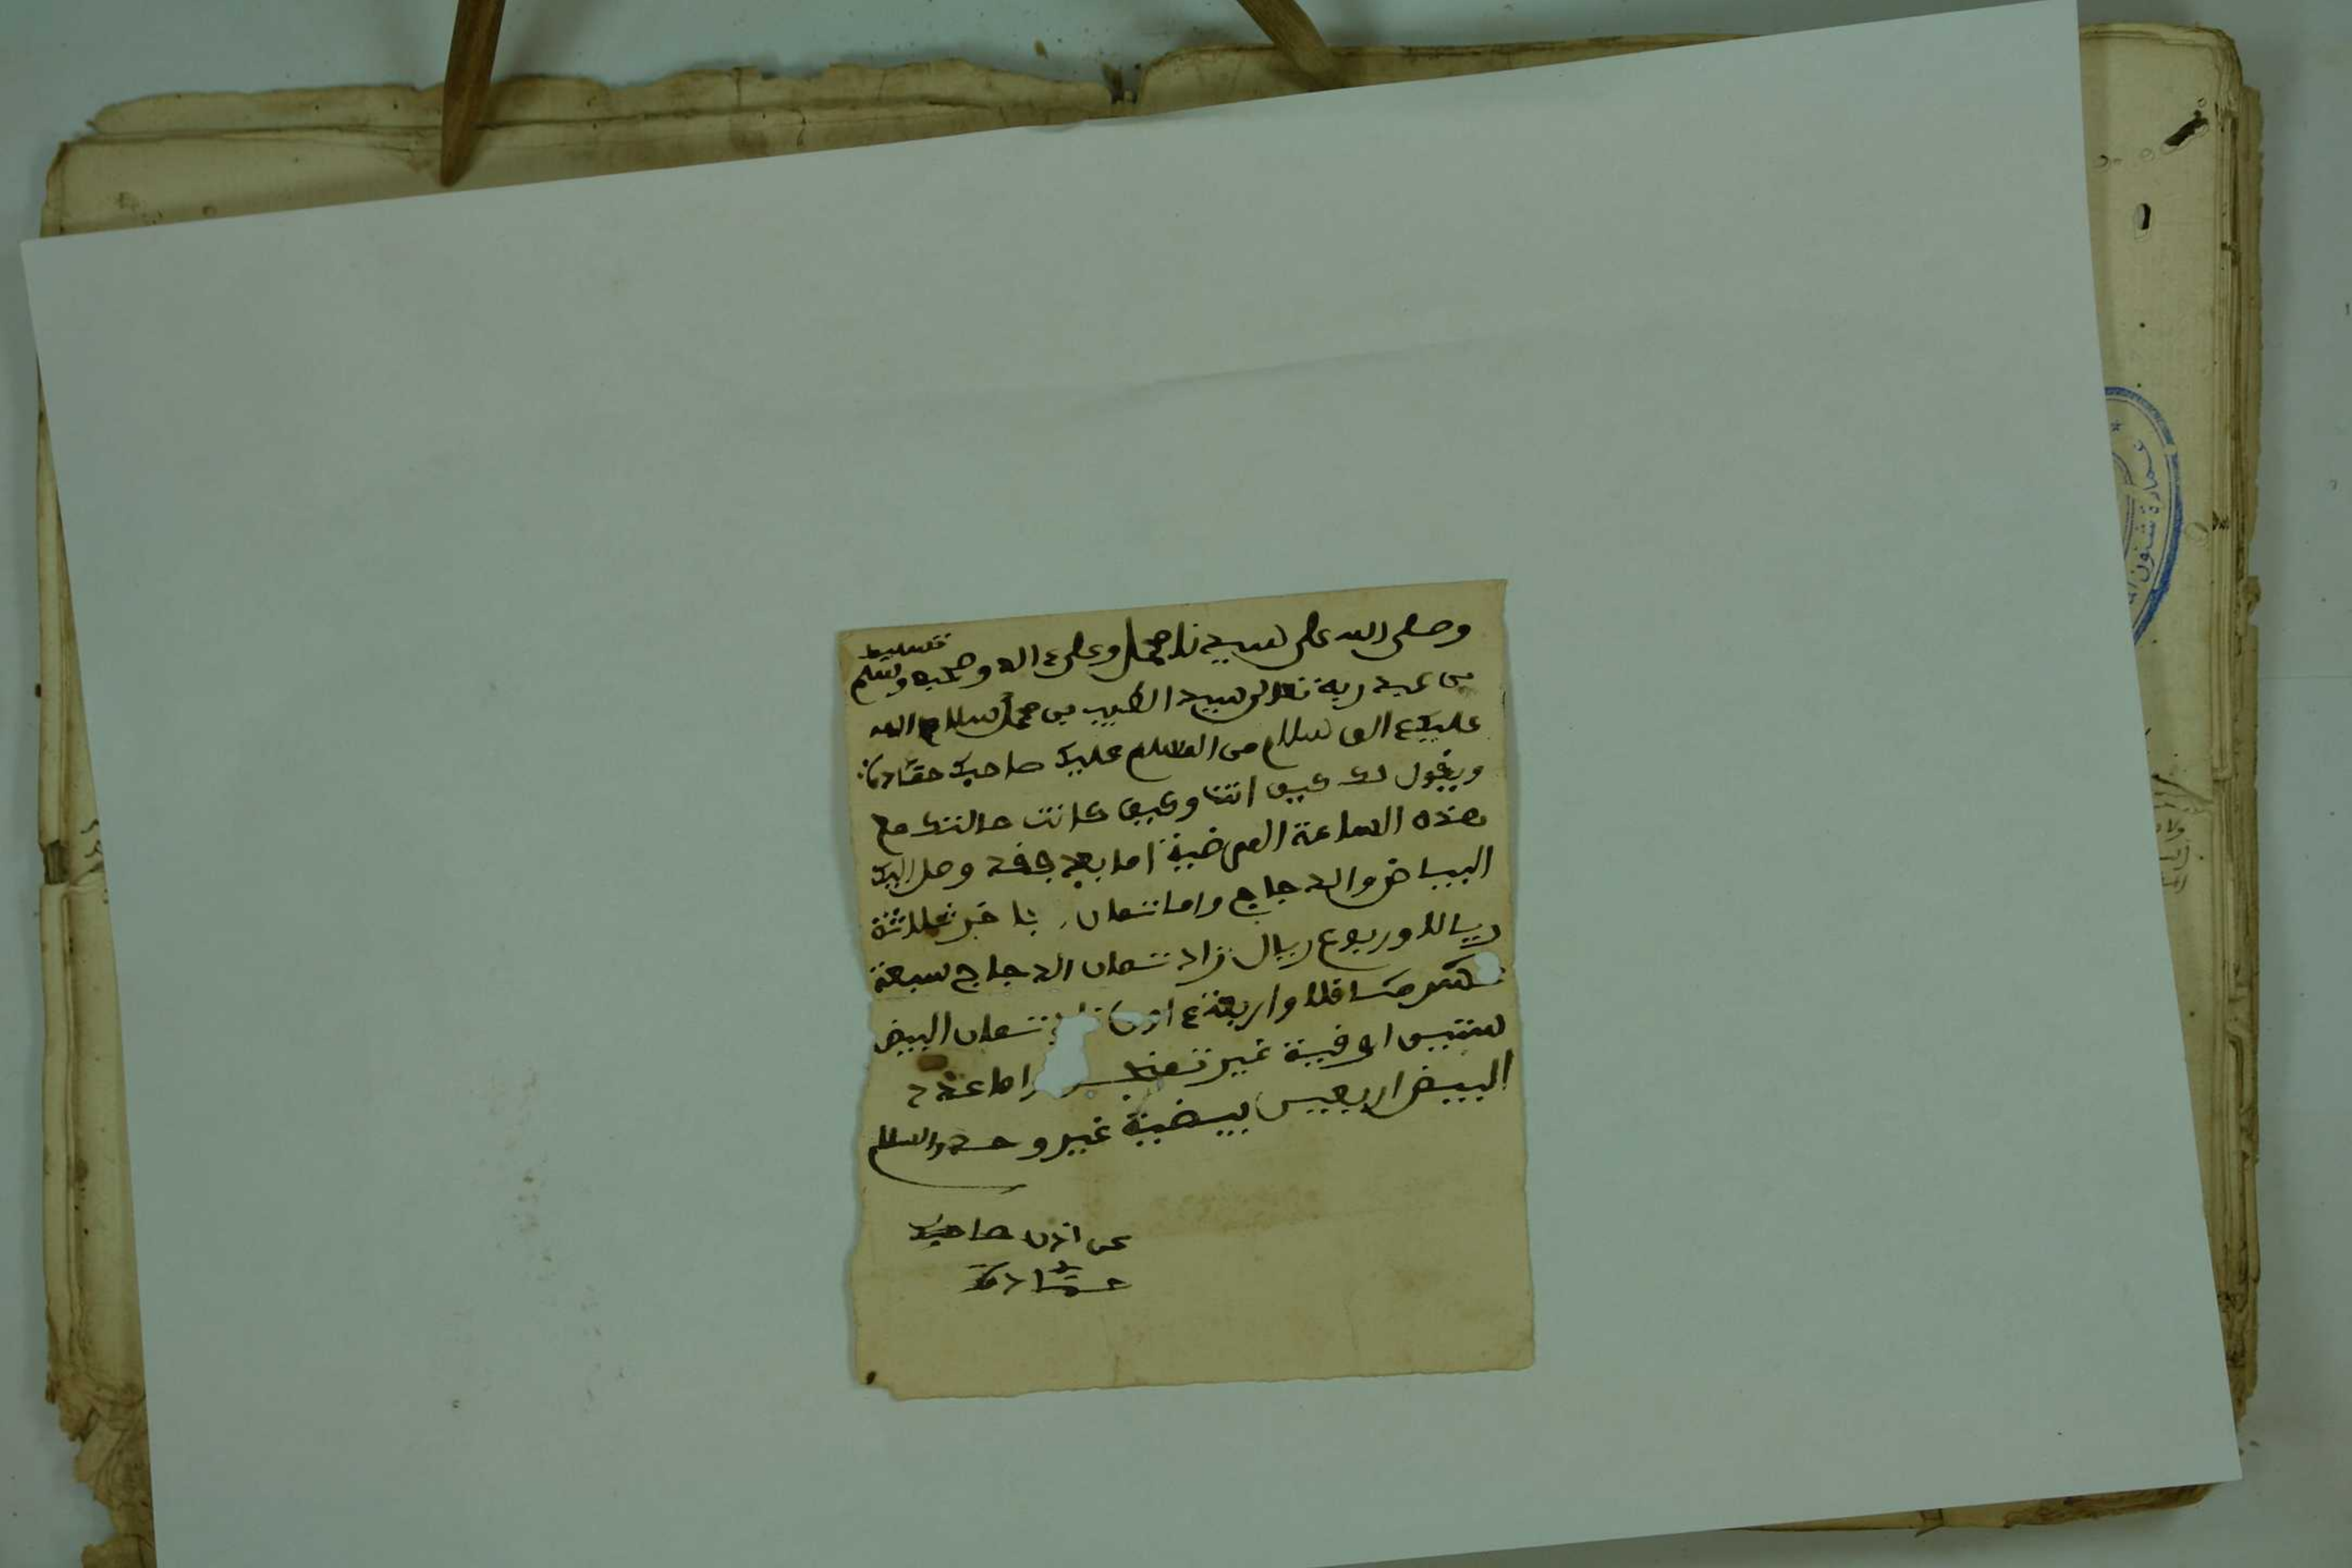 وصلى الله على سيدنا محمد وعلى ءاله وصحبه وسلم تسليما
من عبد ربه تعالى سيد الطيب بن محمد سلام الله
عليك الف سلام من المسلم عليك صاحبك
ويقول لك كيف انت وكيف كانت حالتك مع
هذه الساعة المرضية اما بعد فقد وصل اليك
البياض والدجاج واما شمان ثلاثة
ريالا وربوع ريال زاد شمان الدجاج سبعة
مثاقلا واربعة شمان البيض
ستين اوقية غير واما عدد
البيض اربعين بيضية غير وحد والسلام
عن اذن صاحبك
عمادة شئون